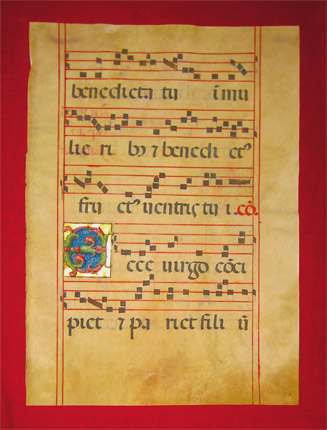 benedicta tu ĩ mu
lie ri bꝫ ⁊ benedi ctꝰ
fru ctꝰ uentris tu i. cõ.
E cce uirgo cõci
piet ⁊ pa riet fili ũ